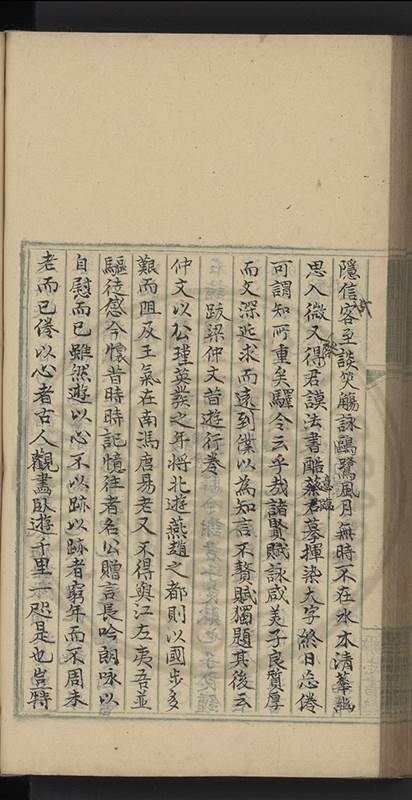 隱信客至談笑觴詠鷗鷺風月無時不在水木清華幽
思入微又得君謨法書酷萃君摹揮染大字終日忘倦
可謂知所重矣驛令云乎哉諸賢賦詠咸美子良質厚
而文深造求而遠到僕以為知言不贅賦獨題其後云
跋梁仲文昔遊行卷
仲文以公瑾英發之年將北遊燕趙之都則以國步多
艱而阻及王氣在南馮唐易老又不得與江左夷吾並
驅徒感今懷昔時時記憶往者名公贈言長吟朗咏以
自慰而已雖然遊以心不以跡以跡者窮年而不周未
老而已倦以心者古人觀畫臥遊千里一咫是也豈特